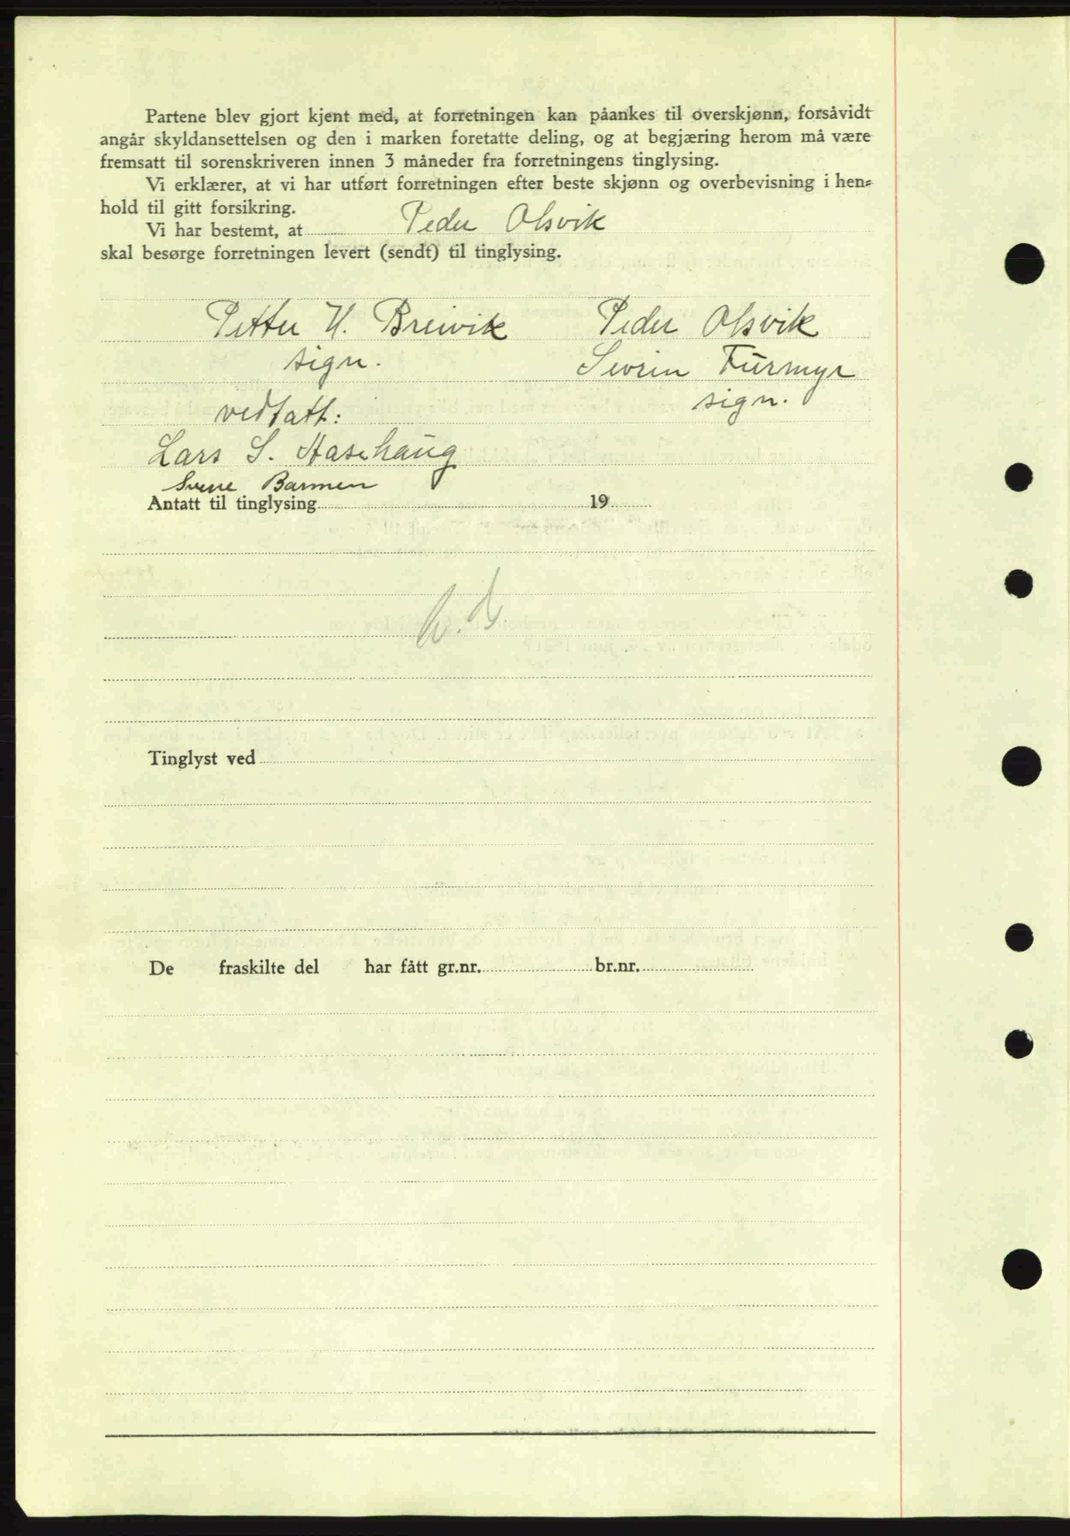 Partene blev gjort kjent med, at forretningen kan påankes til overskjønn, forsåvidt
angår skyldansettelsen og den i marken foretatte deling, og at begjæring herom må være
fremsatt til sorenskriveren innen 3 måneder fra forretningens tinglysing.
Vi erklærer, at vi har utført forretningen efter beste skjønn og overbevisning i hen-
hold til gitt forsikring.
Vi har bestemt, at Peder Olsvik
skal besørge forretningen levert (sendt) til tinglysing.
Petter H. Breivik Peder Olsvik
sign. Sevrin Furmyr
sign.
vedtatt:
Lars S. Aasehaug
Barmen
Antatt til tinglysing 19
Tinglyst ved
De fraskilte del har fått gr.nr. br.nr.